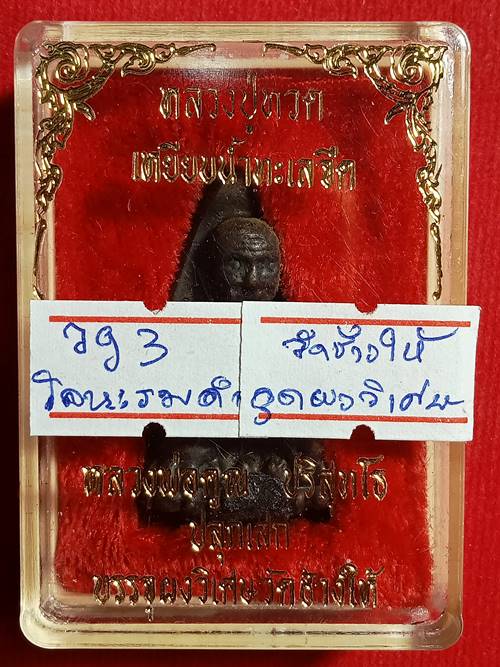 หลวงปู่ทวด
เหยียบน้ำทะเลจืด
วัดช้างให้
โลหะรมดำ อุดผงวิเศษ
หลวงพ่อคูณ ปริสุทโธ
ปลุกเสก
บรรจุผงวิเศษวัดช้างให้